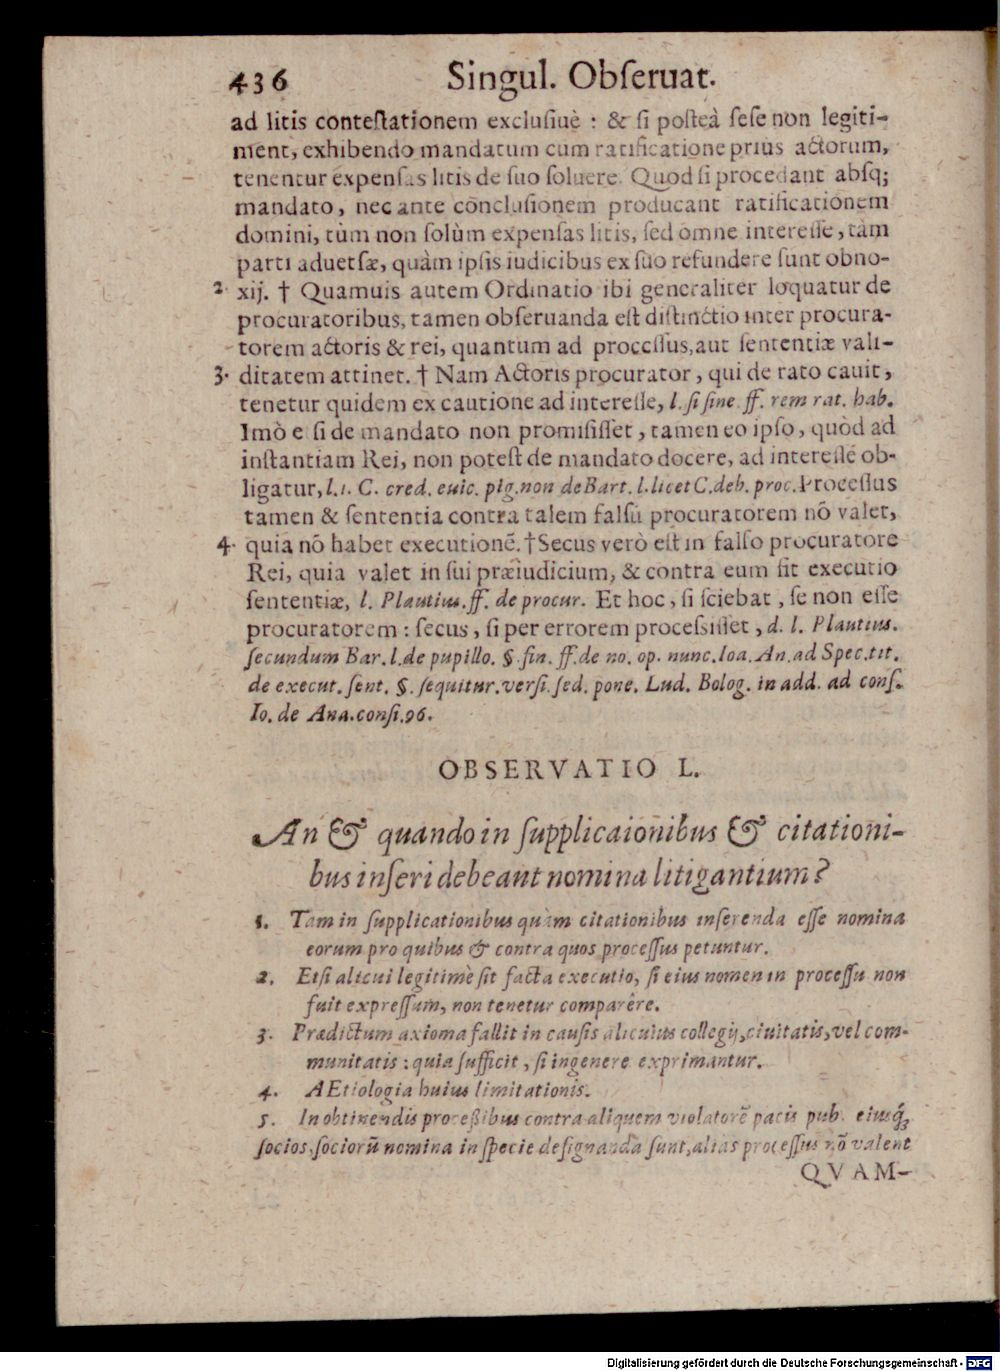 436 Singul. Obſeruat.
ad litis conteſtationem excluſiuè : & ſi poſteà ſeſe non legiti-
ment, exhibendo mandatum cum ratificatione prius actorum,
tenentur expenſas litis de ſuo ſoluere. Quod ſi procedant abſq;
mandato, nec ante conclusionem producant ratificationem
domini, tùm non ſolùm expenſas litis, ſed omne intereſſe, tàm
parti aduetſæ, quàm ipſis iudicibus ex ſuo refundere ſunt obno-
2. xij. † Quamuis autem Ordinatio ibi generaliter loquatur de
procuratoribus, tamen obſeruanda eſt diſtinctio inter procura-
torem actoris & rei, quantum ad proceſſus, aut ſententiæ vali-
3. ditatem attinet. † Nam Actoris procurator, qui de rato cauit,
tenetur quidem ex cautione ad intereſſe, l. ſi ſine ff. rem rat. hab.
Imò e ſi de mandato non promiſiſſet, tamen eo ipſo, quòd ad
inſtantiam Rei, non poteſt de mandato docere, ad intereſſe ob-
ligatur, l. 1. C. cred. euic. pig. non de Bart. l. licet C. deb. proc. Proceſſus
tamen & ſententia contra talem falſū procuratorem nō valet,
4. quia nō habet executionē. † Secus verò eſt in falſo procuratore
Rei, quia valet in ſui præiudicium, & contra eum fit executio
ſententiæ, l. Plautius. ff. de procur. Et hoc, ſi ſciebat, ſe non eſſe
procuratorem : ſecus, ſi per errorem proceſsiſſet, d. l. Plautius.
ſecundum Bar. l. de pupillo. §. fin. ff. de no. op. nunc. Ioa. An. ad Spec. tit.
de execut. ſent. §. ſequitur. verſi. ſed. pone. Lud. Bolog. in add. ad conſ.
Io. de Ana. conſi. 96.
OBSERVATIO L.
An & quando in ſupplicaionibus & citationi-
bus inſeri debeant nomina litigantium?
1. Tam in ſupplicationibus quàm citationibus inſerenda eſſe nomina
eorum pro quibus & contra quos proceſſus petuntur.
2. Etſi alicui legitimè ſit facta executio, ſi eius nomen in proceſſu non
fuit expreſſum, non tenetur comparêre.
3. Prædictum axioma fallit in cauſis alicuius collegij, ciuitatis, vel com-
munitatis : quia ſufficit, ſi in genere exprimantur.
4. AEtiologia huius limitationis.
5. In obtinendis proceßibus contra aliquem violatorē pacis pub. eiusq́;
ſocios, ſociorū nomina in ſpecie deſignanda ſunt, alias proceſſus nō valent
QVAM-
Digitalisierung gefördert durch die Deutsche Forschungsgemeinschaft - DFG